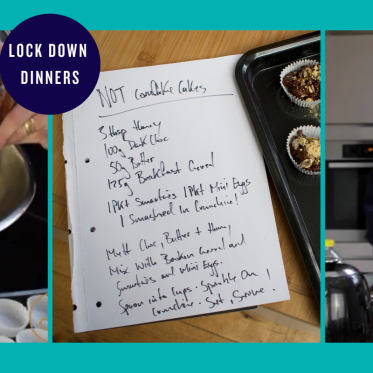 LOCK DOWN
DINNERS
NOT Cornflake Cakes
3 tbsp Honey
100g Dark Choc
50g Butter
125g Breakfast Cereal
1 Pkt Smarties 1 Pkt Mini Eggs
1 Smashed In Crunchie!
Melt Choc, Butter + Honey
Mix With Broken Cereal and
Smarties and Mini Eggs.
Spoon into Cups. Sprinkle On
Crunchie. Set, Serve!